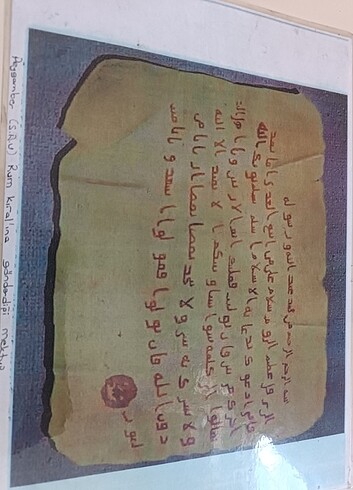 بسم الله الرحمن الرحيم من محمد عبد الله ورسوله
الى هرقل عظيم الروم سلام على من اتبع الهدى اما بعد
فانى ادعوك بدعاية الاسلام اسلم تسلم يؤتك الله
اجرك مرتين فان توليت فعليك اثم الاريسيين ويا اهل
الكتاب تعالوا الى كلمة سواء بيننا وبينكم الا نعبد الا الله
ولا نشرك به شيئا ولا يتخذ بعضنا بعضا اربابا من
دون الله فان تولوا فقولوا اشهدوا بانا مس
لمون
Peygamber (S.A.V) Rum kıralına gönderdiği mektup